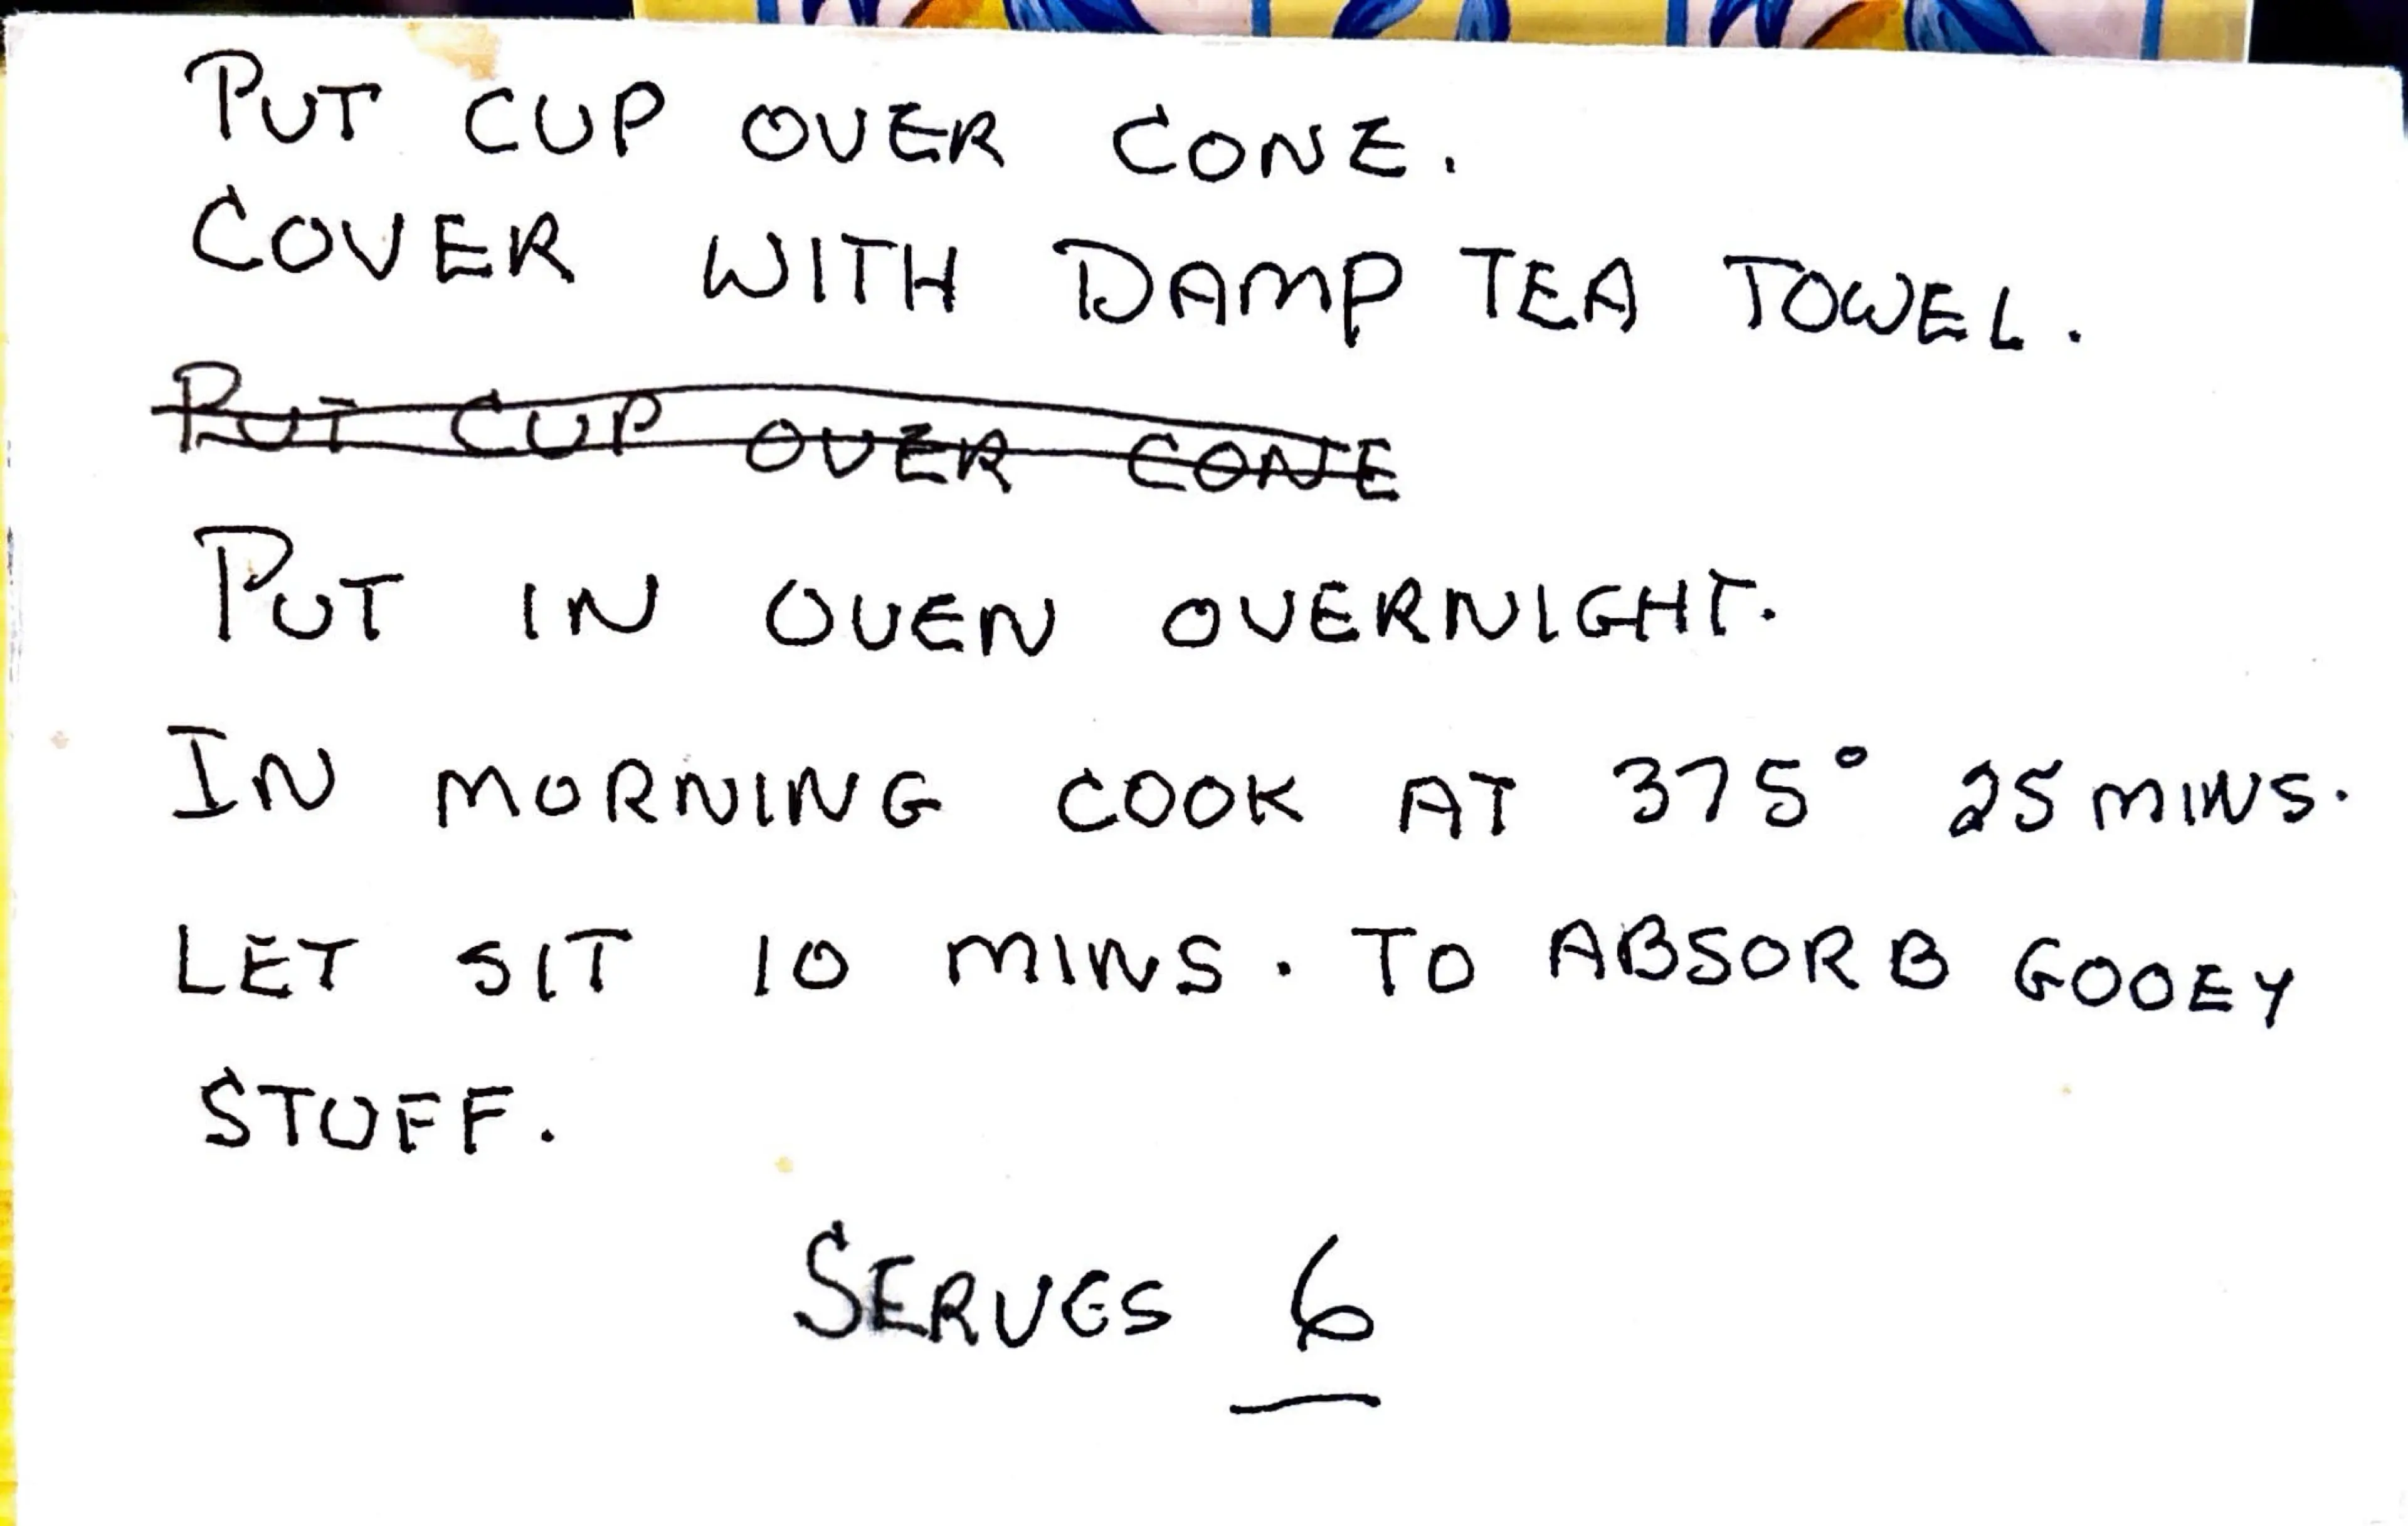 PUT CUP OVER CONE.
COVER WITH DAMP TEA TOWEL.
PUT CUP OVER CONE
PUT IN OVEN OVERNIGHT.
IN MORNING COOK AT 375° 25 MINS.
LET SIT 10 MINS. TO ABSORB GOOEY
STUFF.
SERVES 6